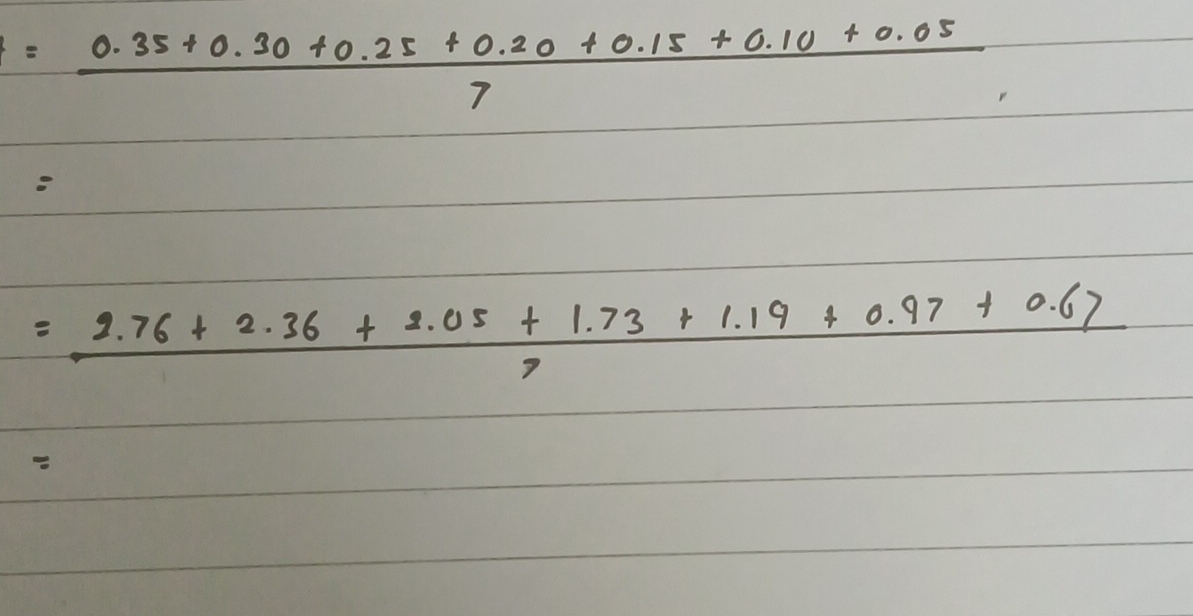 = 0.35 + 0.30 + 0.25 + 0.20 + 0.15 + 0.10 + 0.05
7
=
= 2.76 + 2.36 + 2.05 + 1.73 + 1.19 + 0.97 + 0.67
7
=